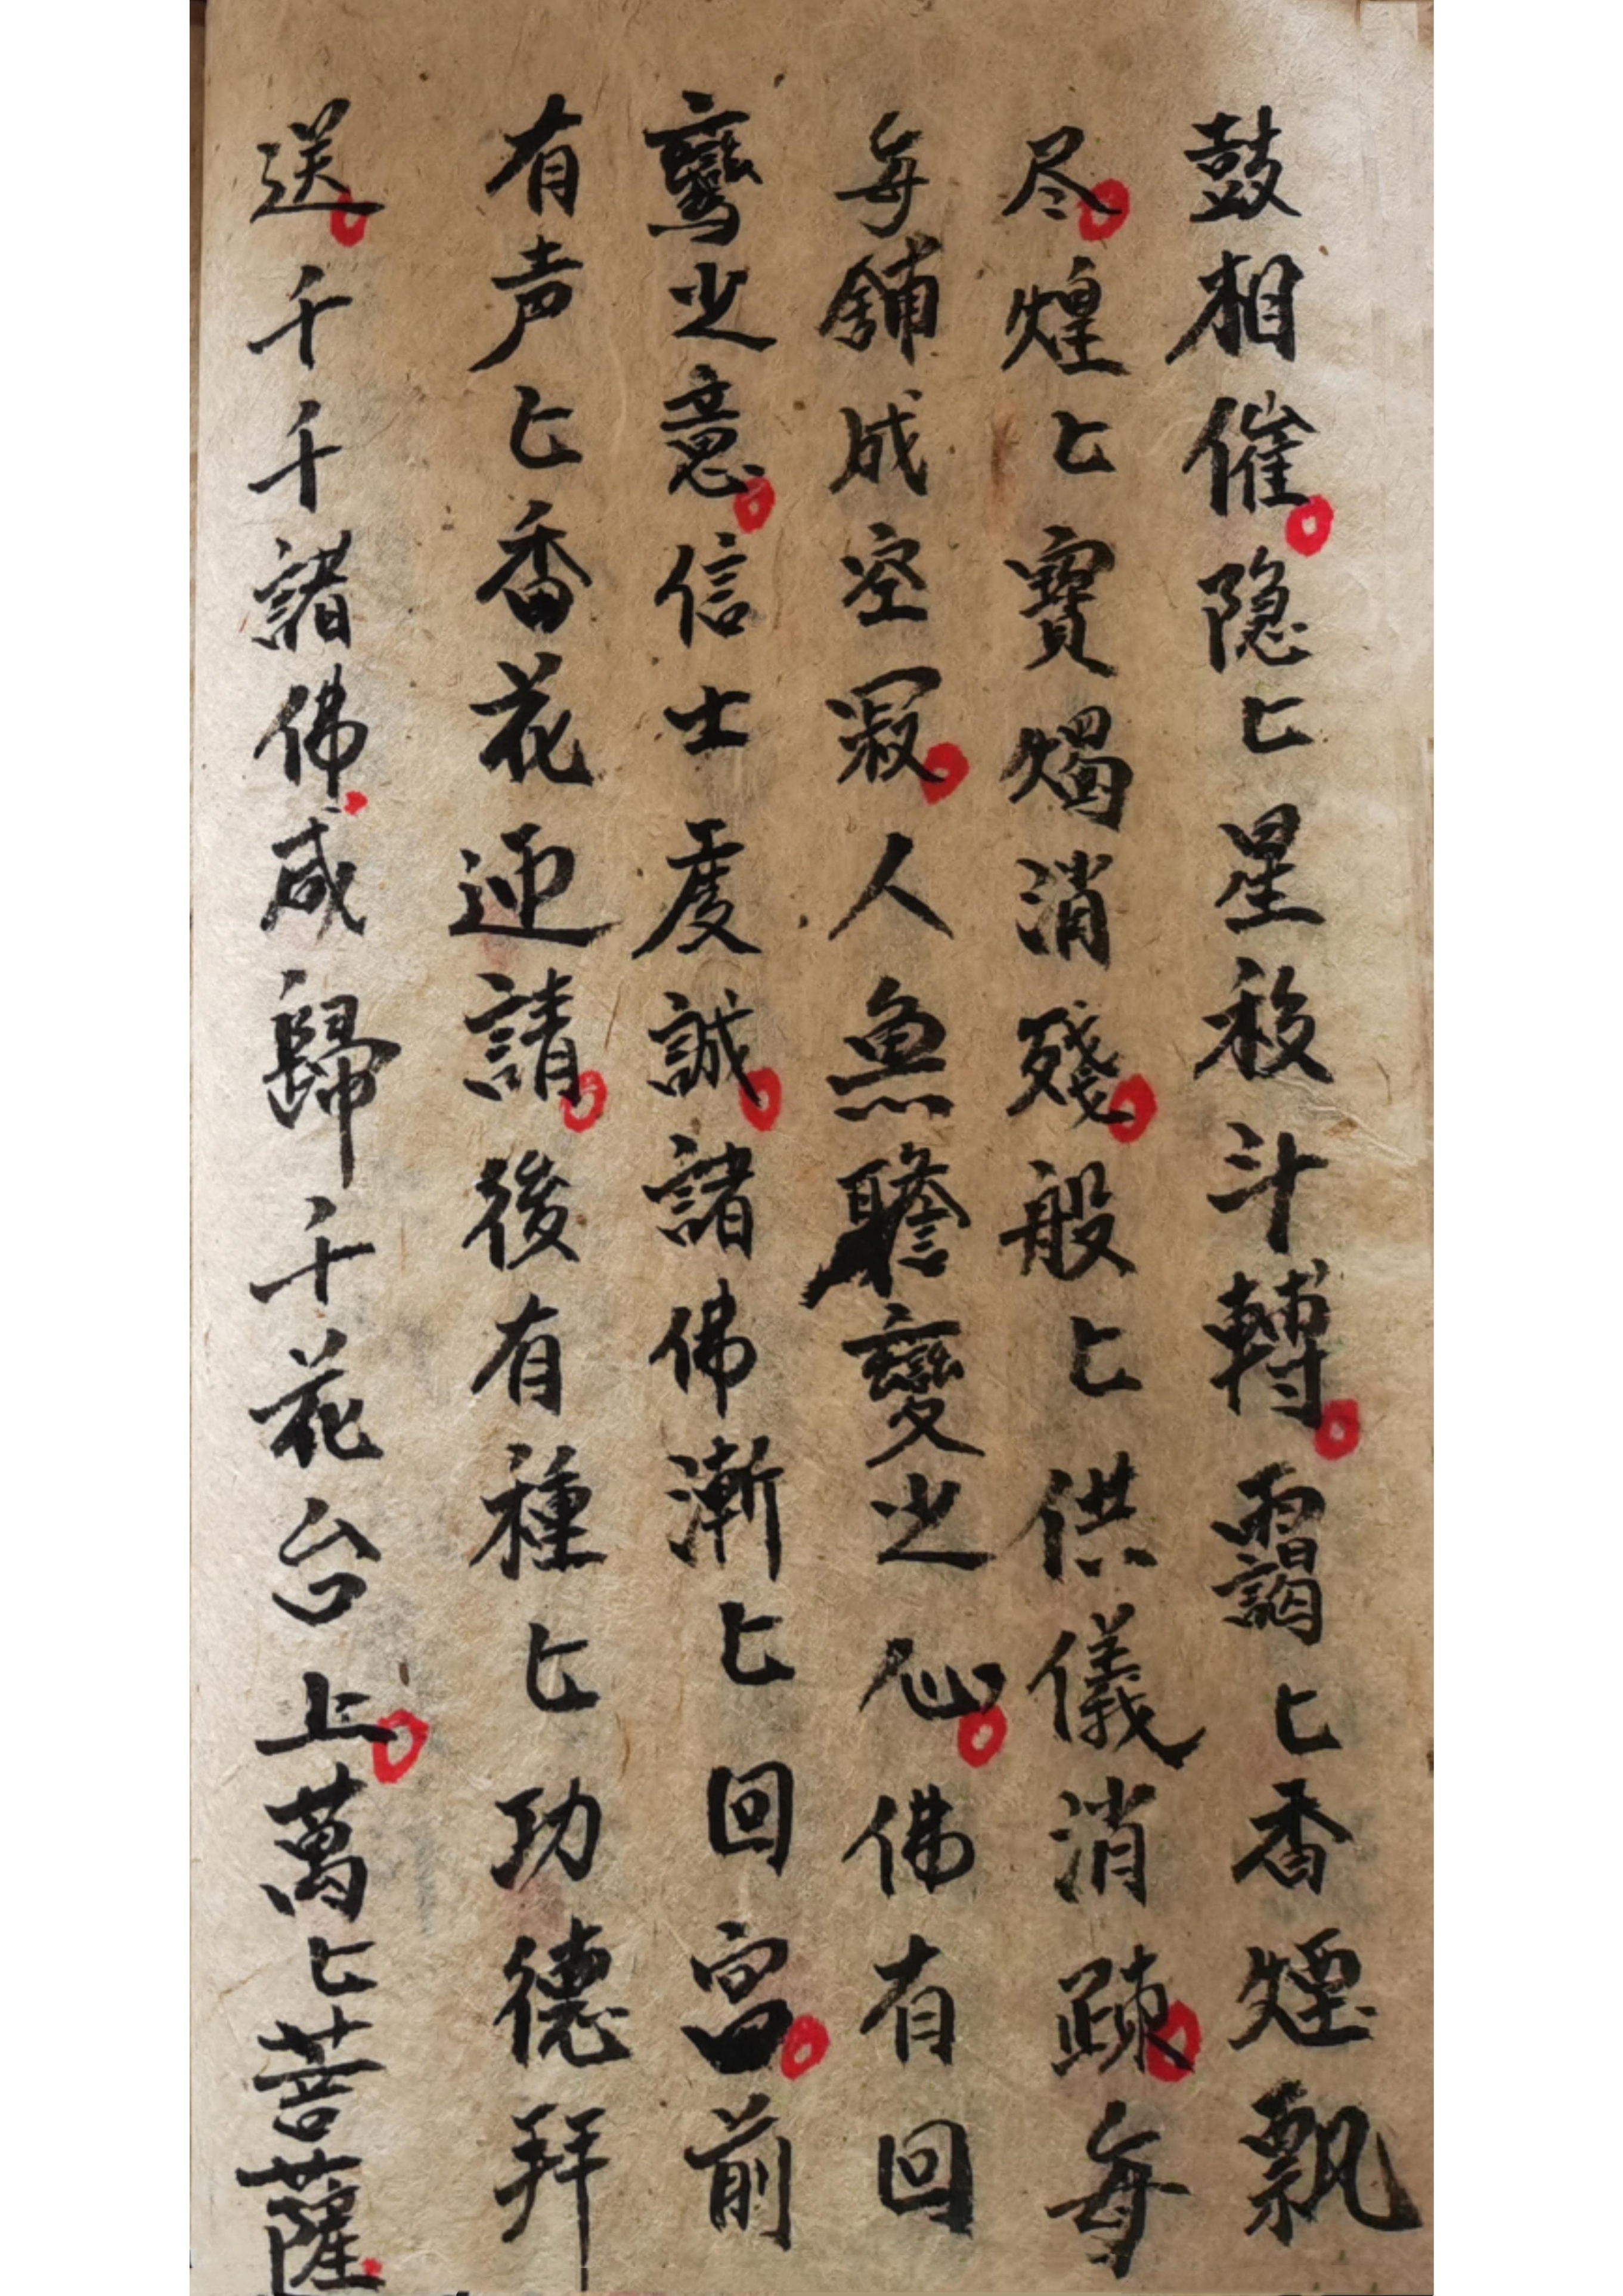 鼓相催隐匕星移斗轉靄匕香煙飄
尽煌匕寶燭消殘般匕供儀消踈每
每舖成空寂人無瞻變之心佛有回
鸞之意信士虔誠諸佛漸匕回宮前
有声匕番花迎請後有種匕功德拜
送千千諸佛咸歸千花台上萬匕菩薩